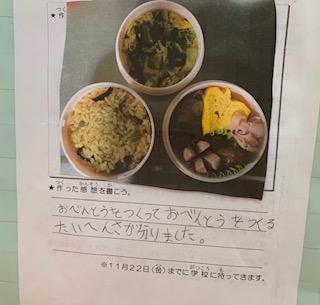 ★作った感想を書こう。
おべんとうをつくって おべんとうをつくる
たいへんさが分りました。
※11月22日(金)までに学校に持ってきます。